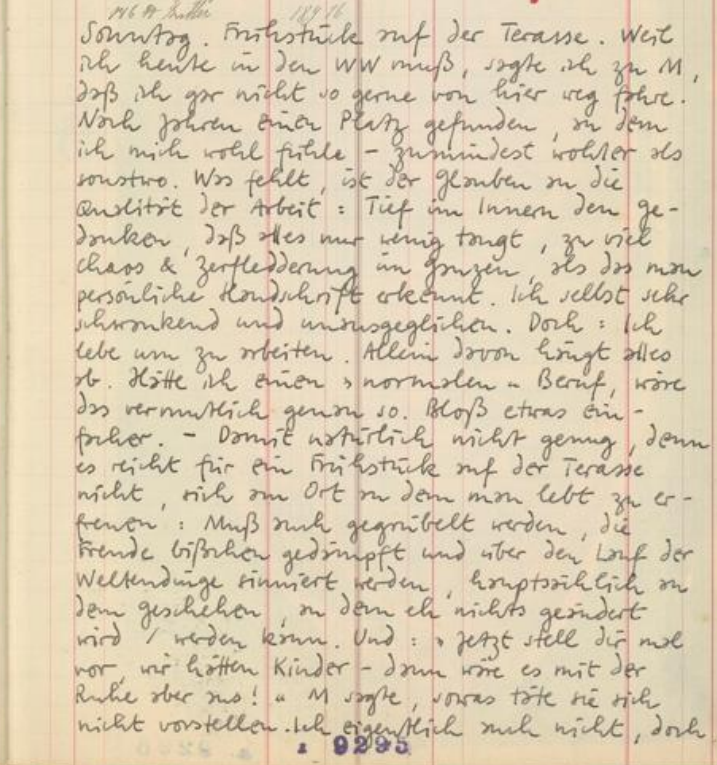 Sonntag. Frühstück auf der Terasse. Weil
ich heute in den WW muß, sagte ich zu M,
daß ich gar nicht so gerne von hier weg fahre.
Nach Jahren einen Platz gefunden, an dem
ich mich wohl fühle – zumindest wohler als
sonstwo. Was fehlt, ist der Glauben an die
Qualität der Arbeit: Tief im Innern den ge-
danken, daß alles nur wenig taugt, zu viel
chaos & Zerfledderung im ganzen, als das man
persönliche Handschrift erkennt. Ich selbst sehr
schwankend und unausgeglichen. Doch: Ich
lebe um zu arbeiten. Allein davon hängt alles
ab. Hätte ich einen »normalen« Beruf, wäre
das vermutlich genau so. Bloß etwas ein-
facher. – Damit natürlich nicht genug, denn
es reicht für ein Frühstück auf der Terasse
nicht, sich am Ort an dem man lebt zu er-
freuen: Muß auch gegrübelt werden, die
Freude bißchen gedämpft und über den Lauf der
Weltendinge sinniert werden, hauptsächlich an
dem geschehen, an dem eh nichts geändert
wird / werden kann. Und: »Jetzt stell dir mal
vor, wir hätten Kinder – dann wäre es mit der
Ruhe aber aus!« M sagte, sowas täte sie sich
nicht vorstellen. Ich eigentlich auch nicht, doch
9295